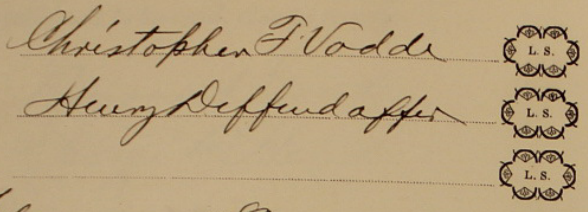 Christopher F. Vodde L. S.
Henry Deffendaffer L. S.
L. S.